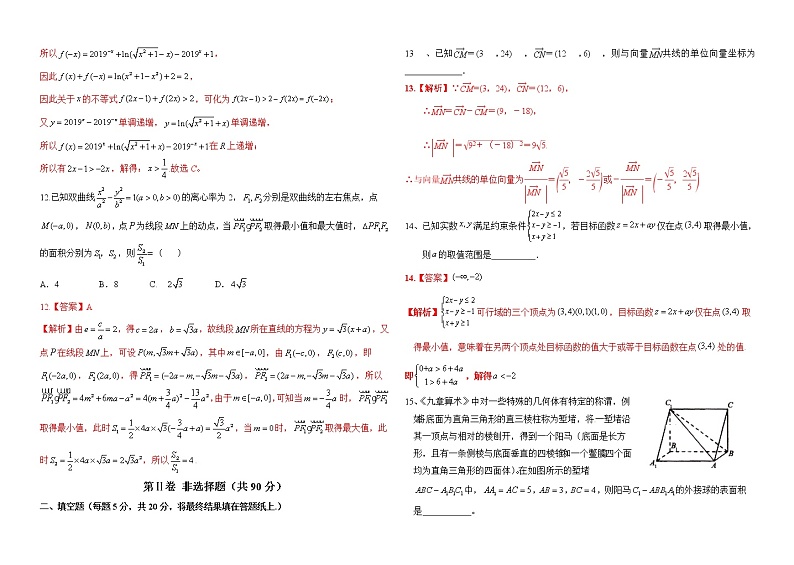 所以 f(−x)=2019^{−x}+ln(√(x²+1)−x)−2019^{x}+1,
因此 f(x)+f(−x)=ln(x²+1−x²)+2=2,
因此关于x的不等式 f(2x−1)+f(2x)>2,可化为 f(2x−1)>2−f(2x)=f(−2x);
又 y=2019^{x}−2019^{−x} 单调递增, y=ln(√(x²+1)+x) 单调递增,
所以 f(x)=2019^{x}+ln(√(x²+1)+x)−2019^{−x}+1 在 R 上递增;
所以有 2x−1>−2x,解得: x>1/4.故选 C。
12.已知双曲线 x²/a²−y²/b²=1(a>0,b>0) 的离心率为 2, F₁,F₂ 分别是双曲线的左右焦点,点
M(−a,0), N(0,b),点 P 为线段 MN 上的动点,当 PF₁gPF₂ 取得最小值和最大值时,△PF₁F₂
的面积分别为 S₁, S₂,则 S₂/S₁=( )
A.4 B.8 C. 2√3 D.4√3
12.【答案】A
【解析】由 e=c/a=2,得 c=2a, b=√3a,故线段 MN 所在直线的方程为 y=√3(x+a),又
点 P 在线段 MN 上,可设 P(m,√3m+√3a),其中 m∈[−a,0],由 F₁(−c,0), F₂(c,0),即
F₁(−2a,0), F₂(2a,0),得 PF₁=(−2a−m,−√3m−√3a), PF₂=(2a−m,−√3m−√3a),所以
PF₁gPF₂=4m²+6ma−a²=4(m+3/4a)²−13/4a²,由于 m∈[−a,0],可知当 m=−3/4a 时, PF₁gPF₂
取得最小值,此时 S₁=1/2×4a×√3(−3/4a+a)=√3/2a²,当 m=0 时, PF₁gPF₂ 取得最大值,此
时 S₂=1/2×4a×√3a=2√3a²,所以 S₂/S₁=4.
第Ⅱ卷 非选择题(共90分)
二、填空题(每题5分,共20分,将最终结果填在答题纸上.)
13 、已知CM=(3 ,24) ,CN=(12 ,6) ,则与向量MN共线的单位向量坐标为
____________.
13.【解析】∵CM=(3,24),CN=(12,6),
∴MN=CN−CM=(9,−18),
∴|MN|=√(9²+(−18)²)=9√5.
∴与向量MN共线的单位向量为 MN/|MN|=(√5/5,−2√5/5)或−MN/|MN|=(−√5/5,2√5/5)
14、已知实数 x,y 满足约束条件{2x−y≤2 x−y≥−1 x+y≥1,若目标函数 z=2x+ay 仅在点 (3,4) 取得最小值,
则 a 的取值范围是__________.
14.【答案】(−∞,−2)
【解析】{2x−y≤2 x−y≥−1 x+y≥1 可行域的三个顶点为 (3,4)(0,1)(1,0),目标函数 z=2x+ay 仅在点 (3,4) 取
得最小值,意味着在另两个顶点处目标函数的值大于或等于目标函数在点 (3,4) 处的值.
即{0+a>6+4a 1>6+4a ,解得 a<−2
15、《九章算术》中对一些特殊的几何体有特定的称谓,例
如:将底面为直角三角形的直三棱柱称为堑堵,将一堑堵沿
其一顶点与相对的棱刨开,得到一个阳马(底面是长方
形,且有一条侧棱与底面垂直的四棱锥)和一个鳖臑(四个面
均为直角三角形的四面体).在如图所示的堑堵
ABC−A₁B₁C₁ 中, AA₁=AC=5, AB=3, BC=4,则阳马 C₁−ABB₁A₁ 的外接球的表面积
是__________.
C₁
C
B₁
B
A₁
A